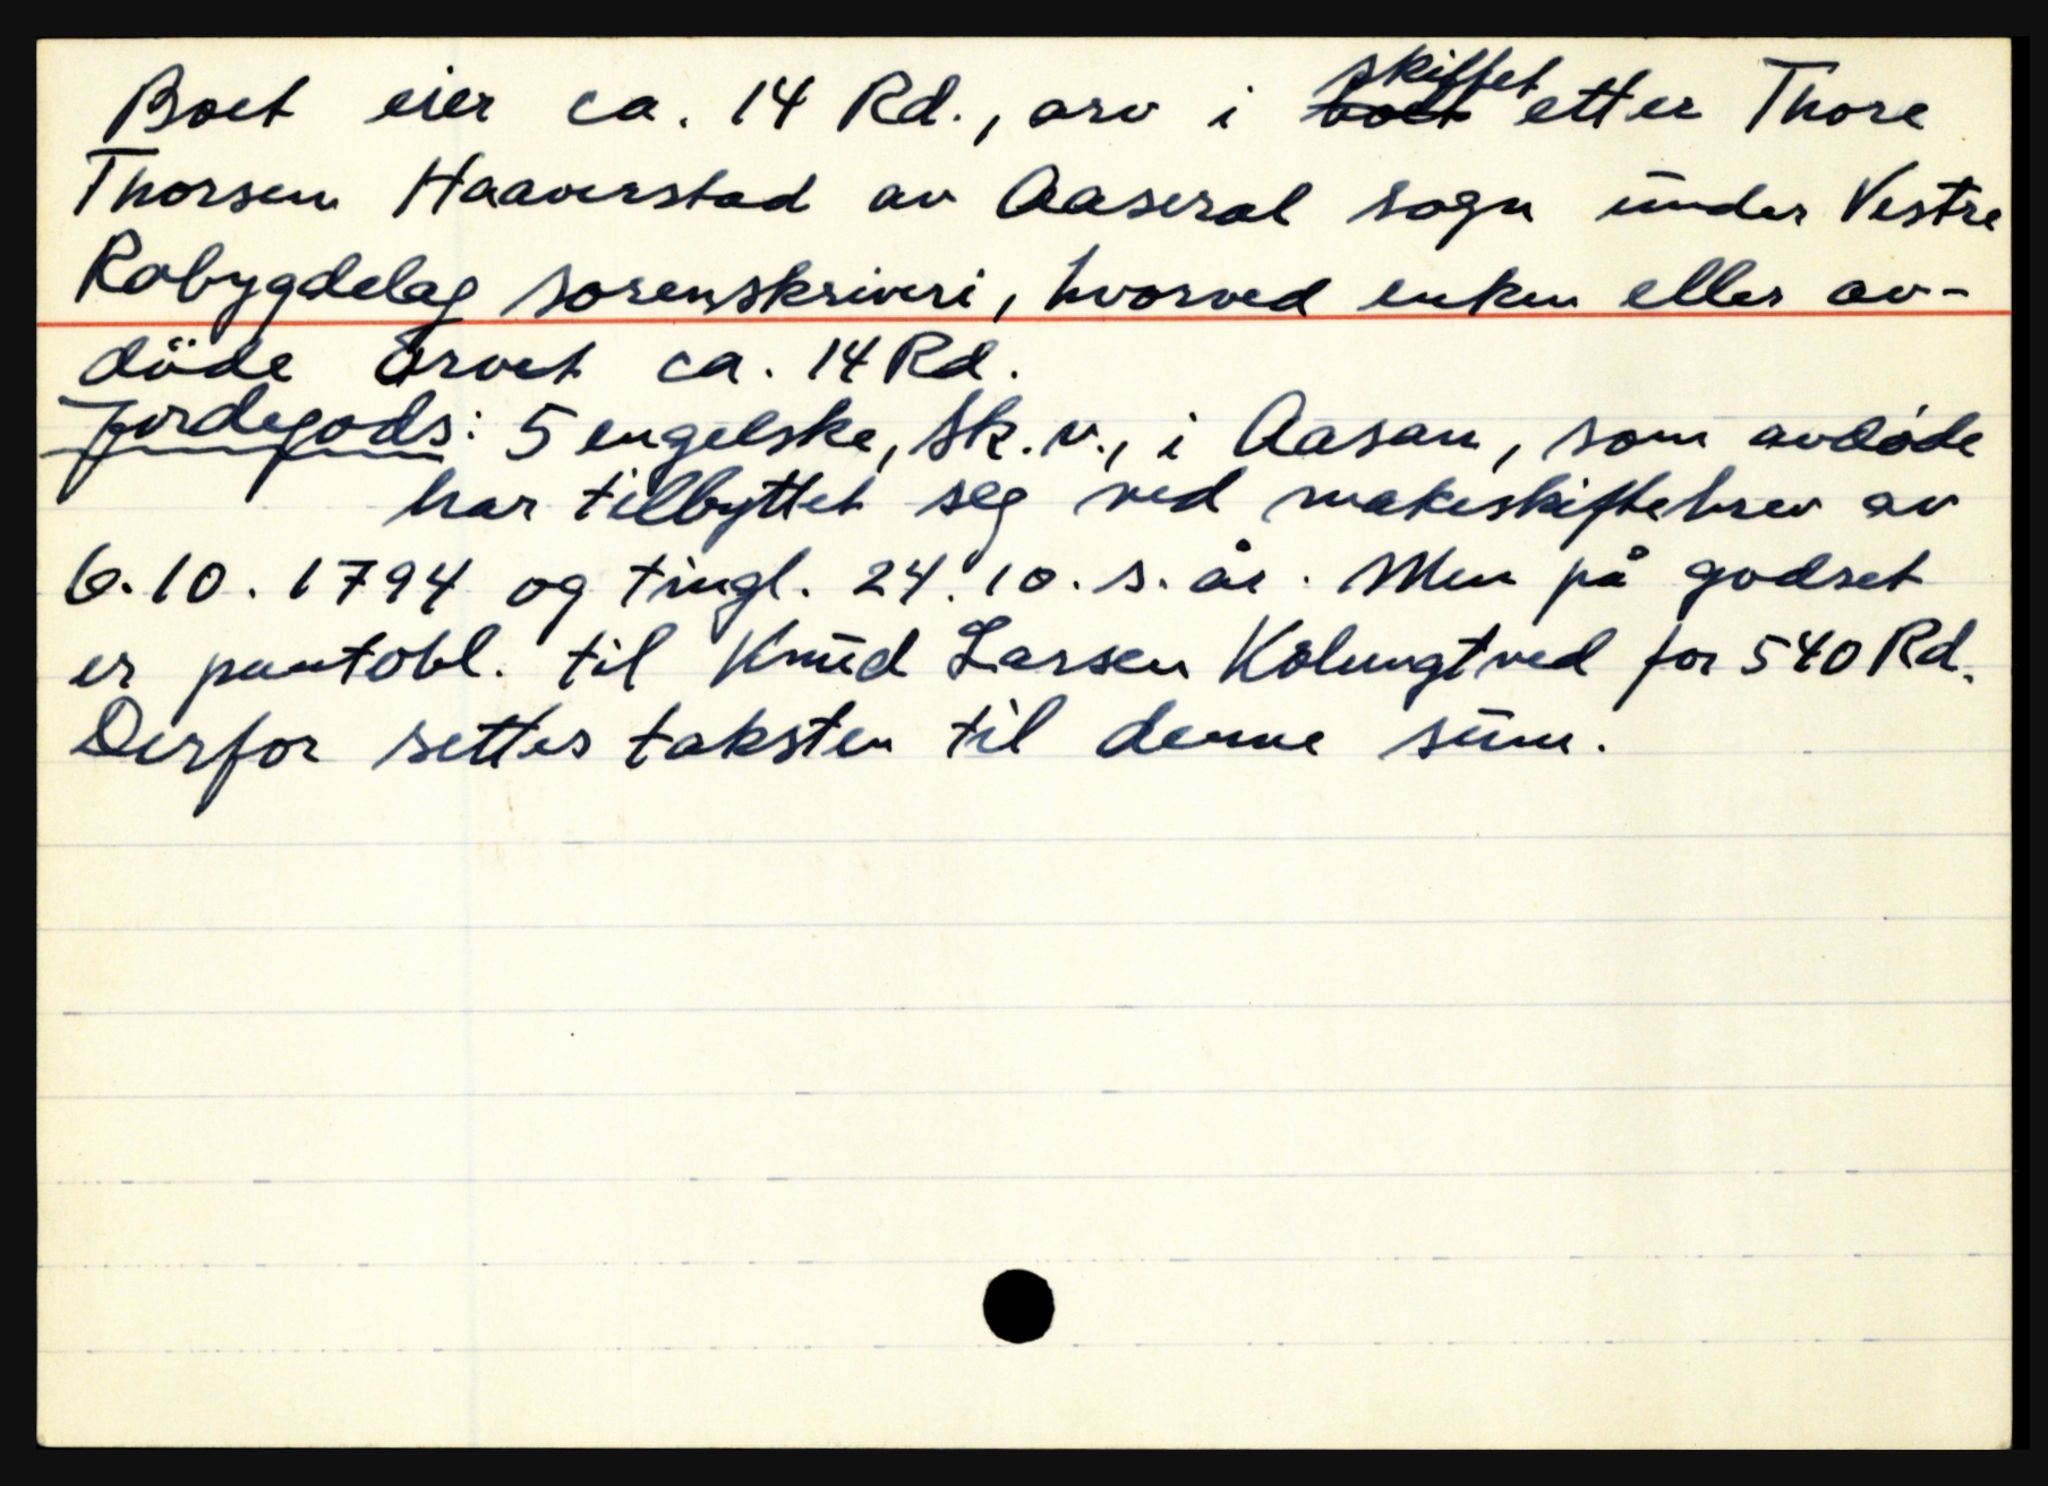 Boet eier ca. 14 Rd., arv i skiftet etter Thore
Thorsen Haaverstad av Aaseral sogn under Vestre
Robygdelag sorenskriveri, hvorved enken eller av-
døde arvet ca. 14 Rd.
Jordegods: 5 engelske, sk.v., i Aasan, som avdøde
har tilbyttet seg ved makeskiftebrev av
6.10.1794 og tingl. 24.10. s. år. Men på godset
er pantobl. til Knud Larsen Kolungtved for 540 Rd.
Derfor settes taksten til denne sum.